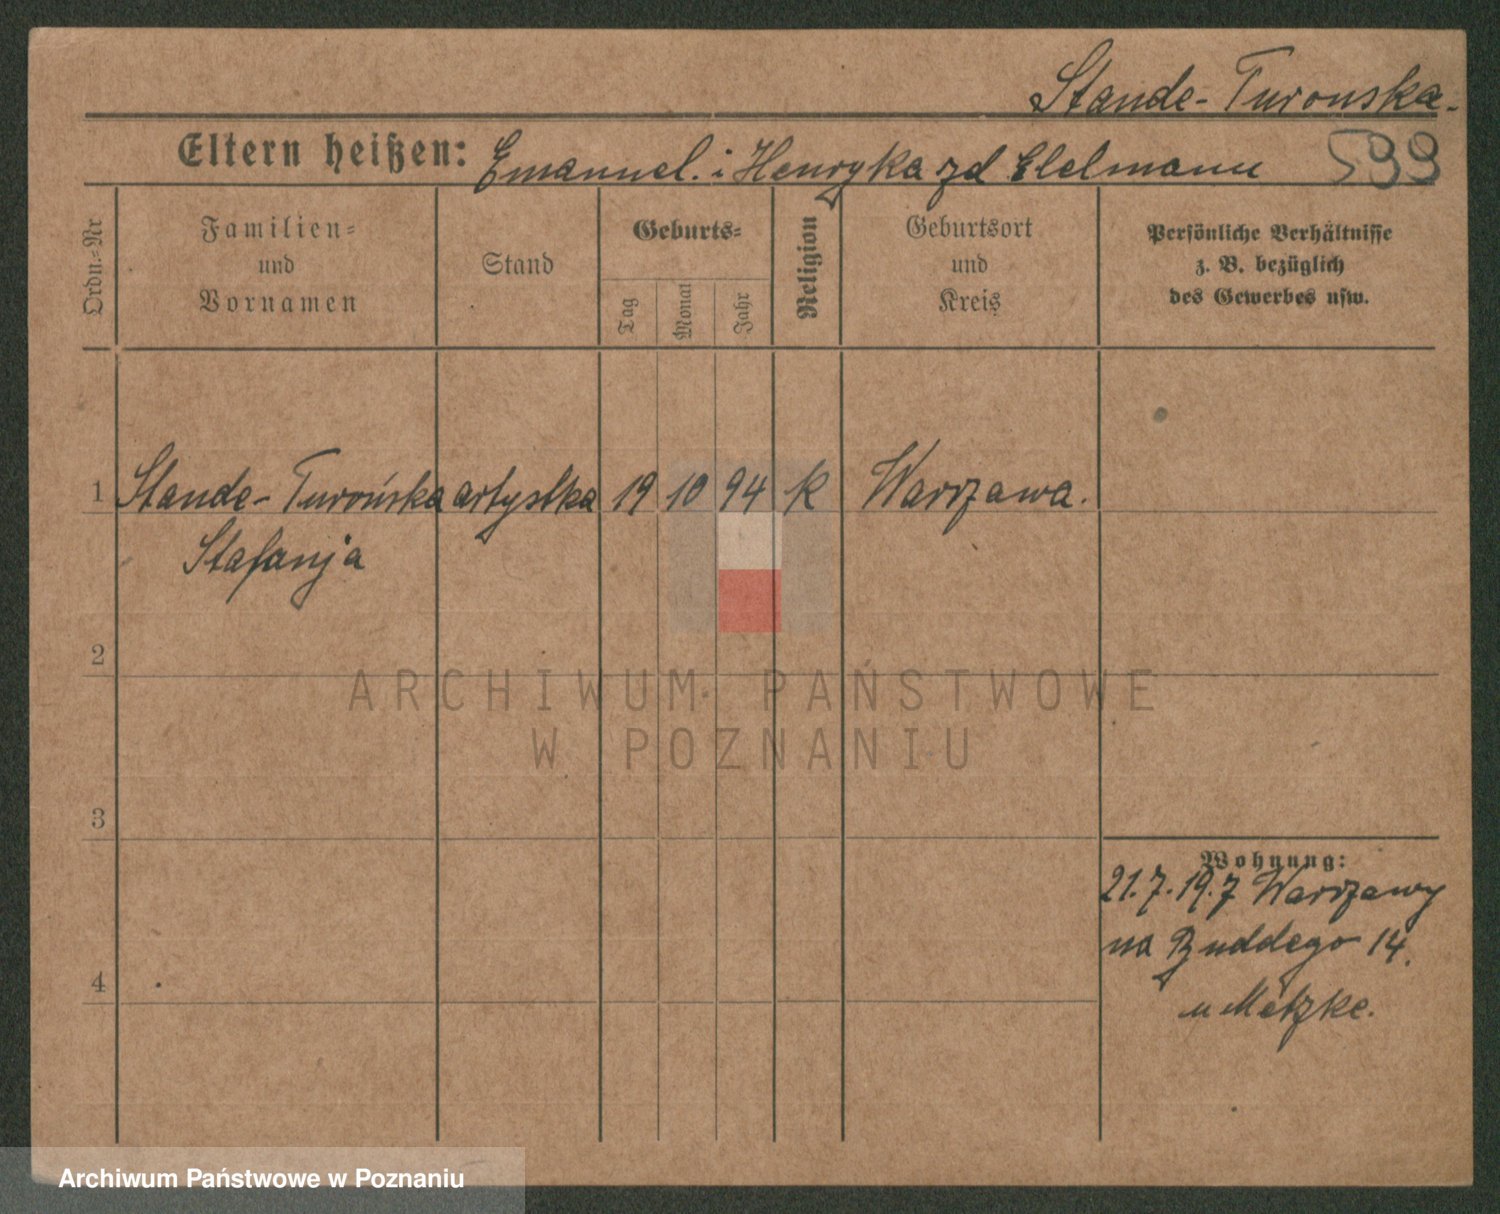 Stande-Turonska.
Eltern heißen: Emanuel. i Henryka zd Elelmann 599
Ordn.-Nr
Familien-
und
Vornamen
Stand
Geburts-
Tag
Monat
Jahr
Religion
Geburtsort
und
Kreis
Persönliche Verhältnisse
z. B. bezüglich
des Gewerbes usw.
1 Stande-Turońska artystka 19 10 94 k Warszawa.
Stafanja
2
ARCHIWUM PAŃSTWOWE
W POZNANIU
3
Wohnung:
21.7.19.7 Warszawy
na Buddego 14.
4
u Metzke.
Archiwum Państwowe w Poznaniu